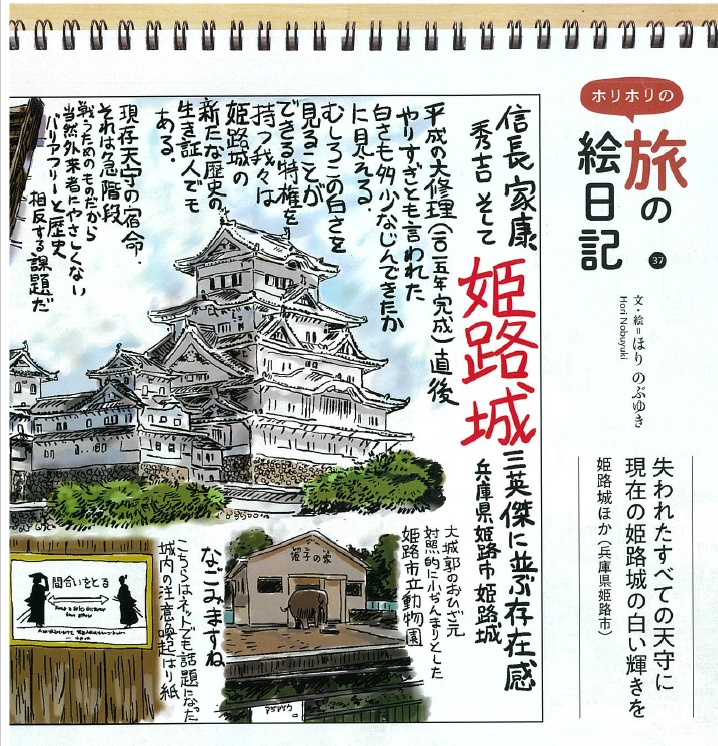 ホリホリの
旅の
絵日記
37
文・絵=ほり のぶゆき
Hori Nobuyuki
失われたすべての天守に
現在の姫路城の白い輝きを
姫路城ほか(兵庫県姫路市)
信長 家康
秀吉 そして
姫路城
三英傑に並ぶ存在感
兵庫県姫路市姫路城
平成の大修理(二〇一五年完成)直後
やりすぎとも言われた
白さも多少なじんできたか
に見える。
むしろこの白さを
見ることが
できる特権を
持つ我々は
姫路城の
新たな歴史の
生き証人でも
ある。
現存天守の宿命。
それは急階段
戦うためのものだから
当然外来者にやさしくない
バリアフリーと歴史
相反する課題だ
大城郭のおひざ元
対照的に小ぢんまりとした
姫路市立動物園
姫子の家
アジアゾウ
なごみますね
こちらはネットでも話題になった
城内の注意喚起はり紙
間合いをとる